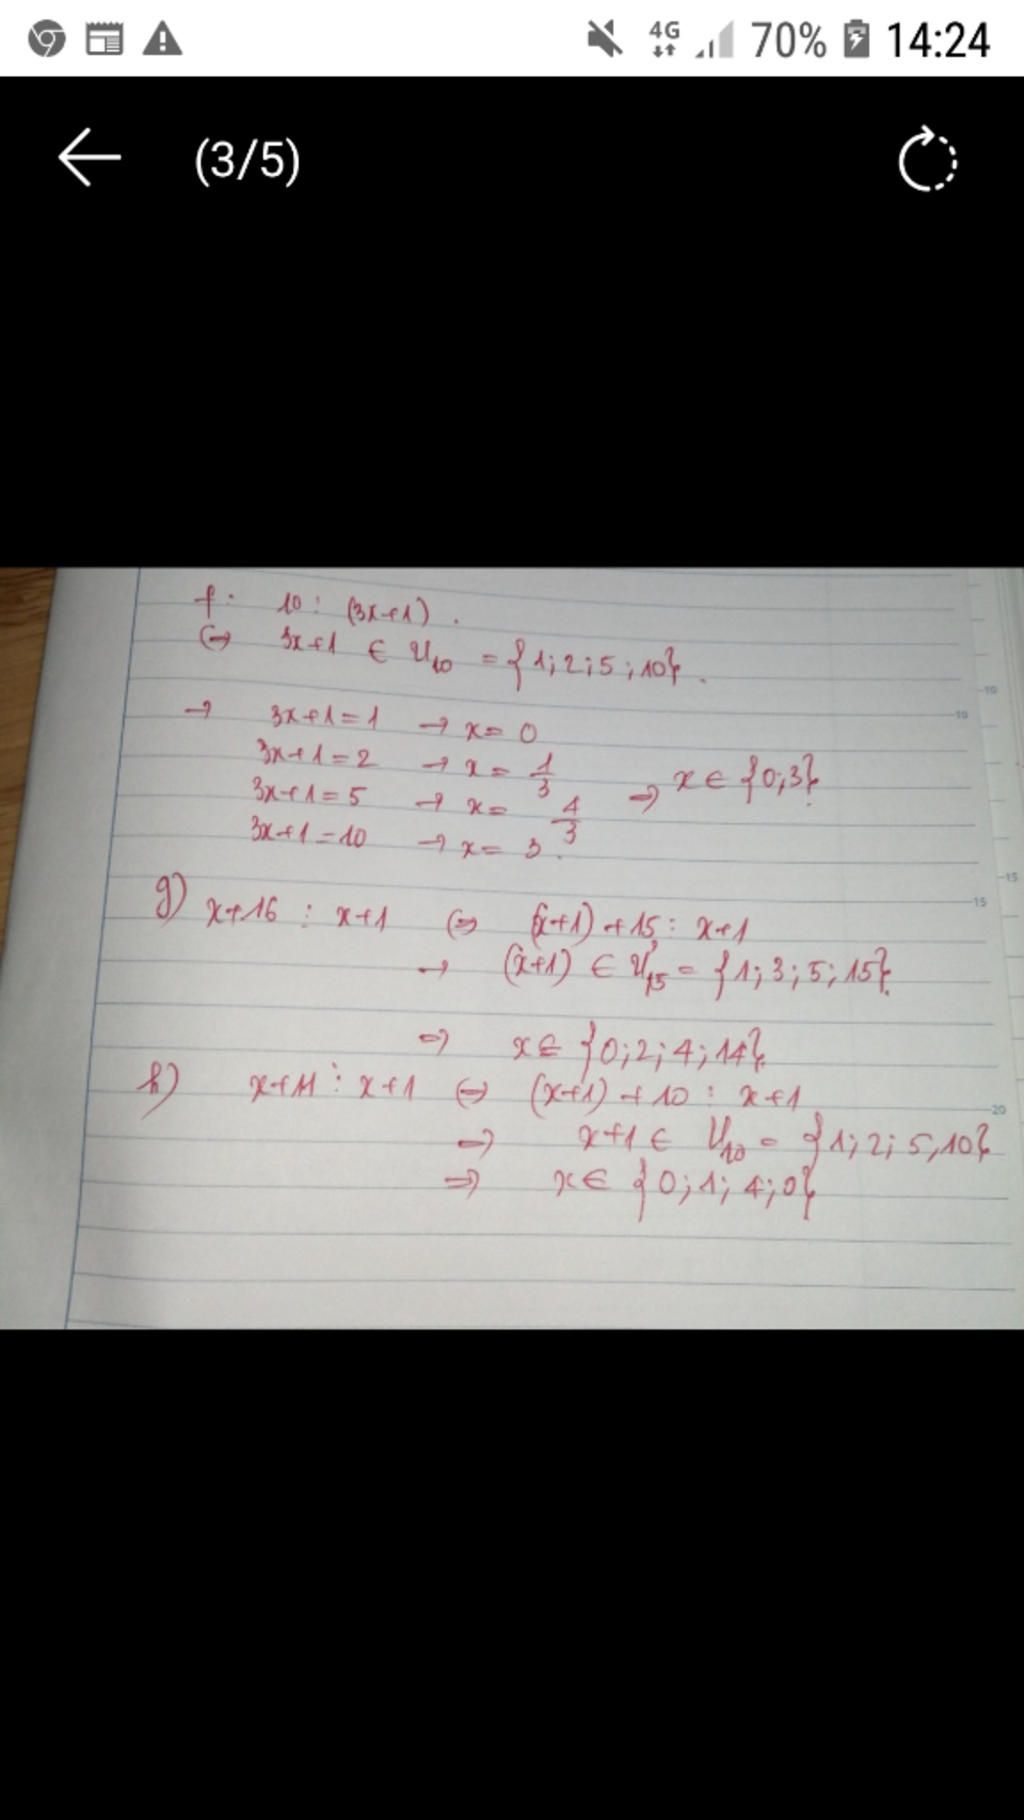 4G 70% 14:24
(3/5)
f. 10 ⋮ (3x+1).
(=) 3x+1 ∈ Ư₁₀ = {1; 2; 5; 10}.
→ 3x+1 = 1 → x = 0
3x+1 = 2 → x = 1/3
3x+1 = 5 → x = 4/3 ⇒ x ∈ {0; 3}.
3x+1 = 10 → x = 3.
g) x+16 ⋮ x+1 (=) (x+1) + 15 ⋮ x+1
→ (x+1) ∈ Ư₁₅ = {1; 3; 5; 15}.
⇒ x ∈ {0; 2; 4; 14}.
h) x+11 ⋮ x+1 (=) (x+1) + 10 ⋮ x+1
⇒ x+1 ∈ Ư₁₀ = {1; 2; 5, 10}
⇒ x ∈ {0; 1; 4; 0}
10
10
15
15
20